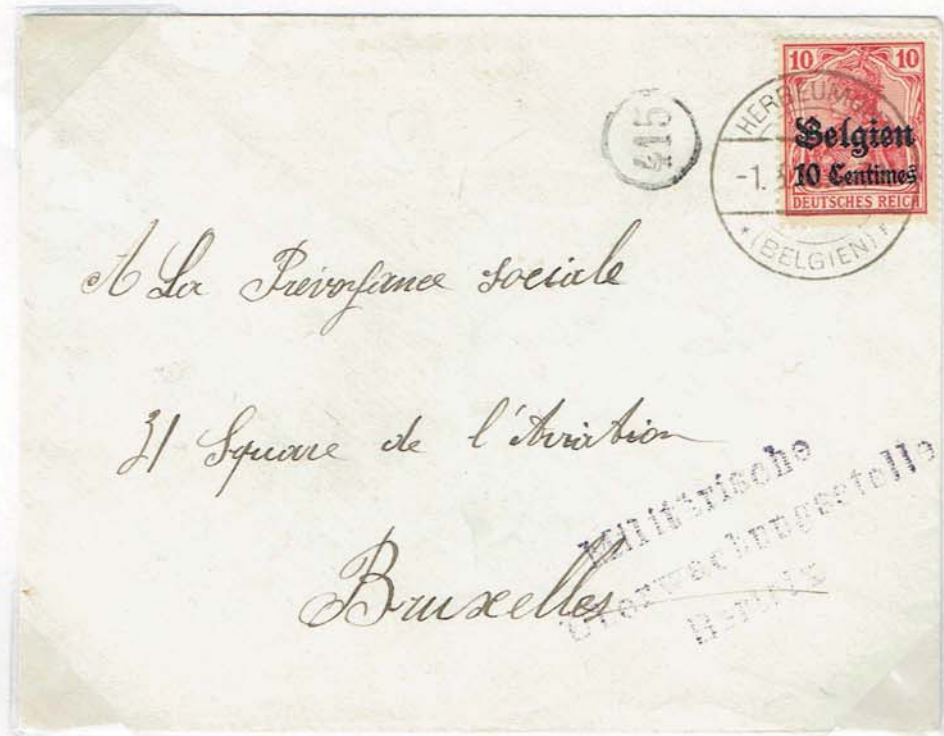 10 10
Belgien
10 Centimes
DEUTSCHES REICH
-1.
* (BELGIEN) *
415
A La Prévoyance sociale
31 Square de l'Aviation
Bruxelles
Militärische
Überwachungsstelle